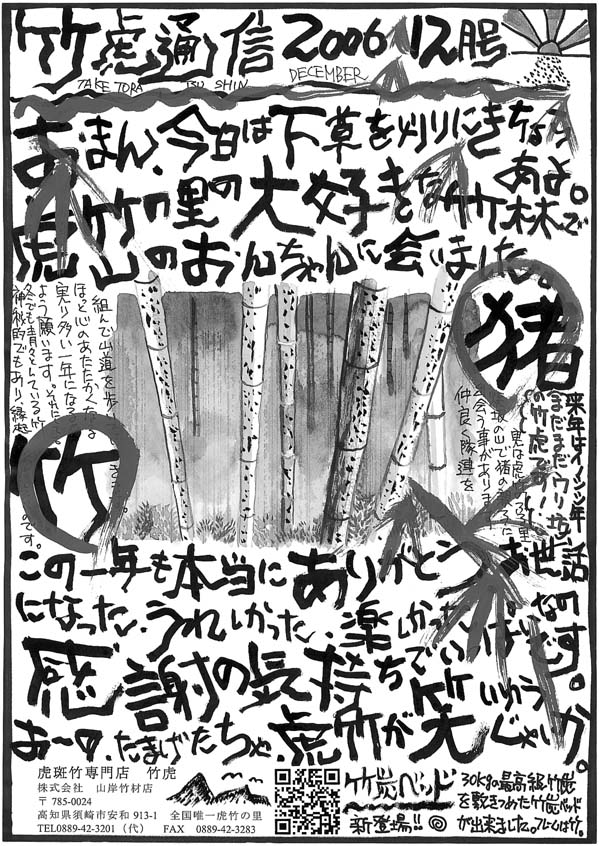 竹虎通信 2006 12月号
TAKE TORA TSU SHIN DECEMBER
おまん、今日は下草を刈りにきちゅう
あよ。
虎竹の里の大好きな竹林で
山のおんちゃんに会いました。
猪
来年はイノシシ年
まだまだウリ坊
の竹虎です
実は虎竹の里
の山で猪の
会う事があります
仲良く隊連を
組んで山道を歩
ほっと心のあたたかくなる
実り多い一年になる
よう願います。
冬でも青々としている竹
神秘的でもあり縁起
のです。
竹
この一年も本当にありがとう。お世話
になった、うれしかった、楽しかった
感謝の気持ちでいっぱいなのです。
お〜の、たまげたちや、虎竹が笑いゆうじゃいか。
虎斑竹専門店 竹虎
株式会社 山岸竹材店
〒785-0024
高知県須崎市安和 913-1 全国唯一虎竹の里
TEL0889-42-3201（代） FAX 0889-42-3283
竹炭ベッド
新登場!!
30kgの最高級竹炭
を敷きつめた竹炭ベッド
が出来ました。フレームは竹。